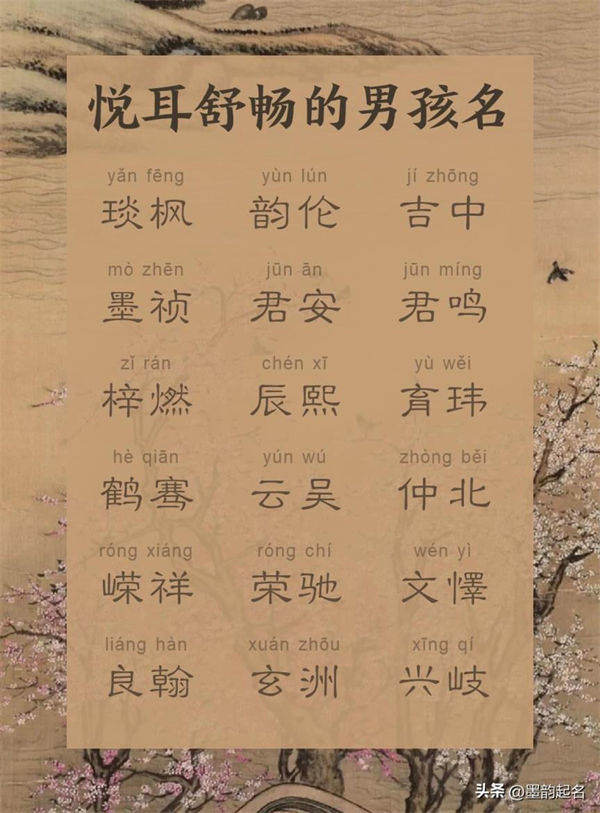 悦耳舒畅的男孩名
yǎn fēng yùn lún jí zhōng
琰枫 韵伦 吉中
mò zhēn jūn ān jūn míng
墨祯 君安 君鸣
zǐ rán chén xī yù wěi
梓燃 辰熙 育玮
hè qiān yún wú zhòng běi
鹤骞 云吴 仲北
róng xiáng róng chí wén yì
嵘祥 荣驰 文懌
liáng hàn xuán zhōu xīng qí
良翰 玄洲 兴岐
头条 @墨韵起名